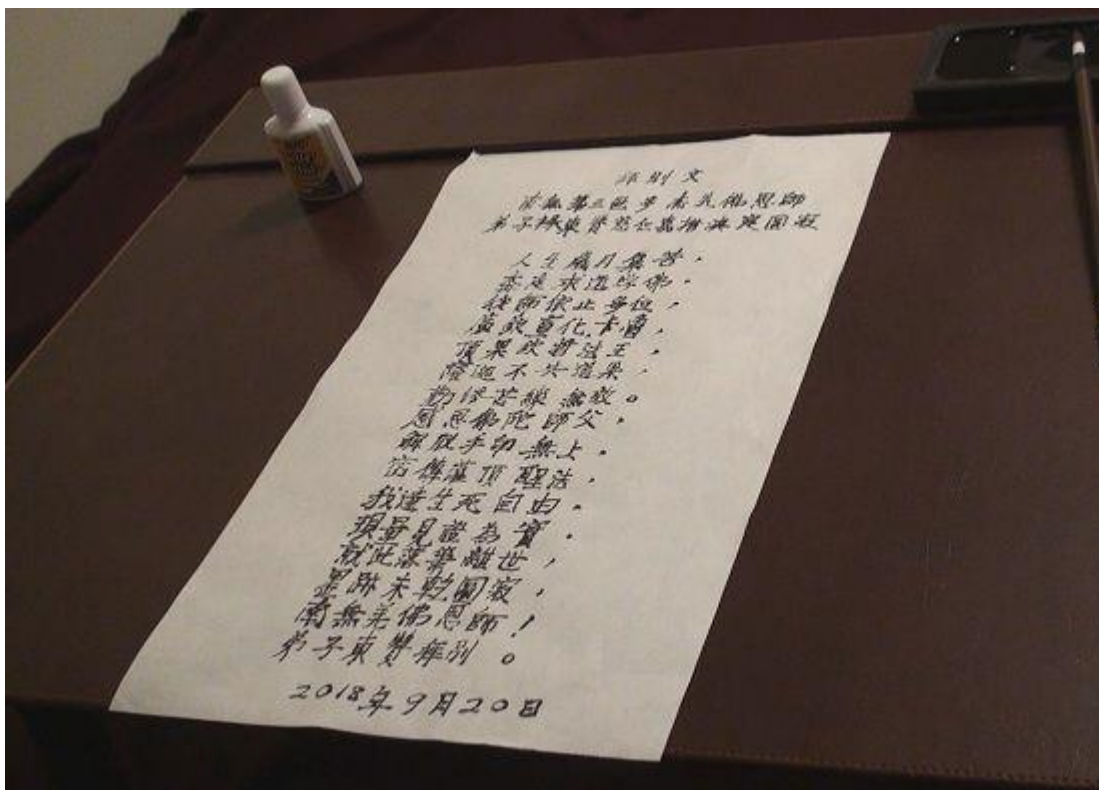 拜別文
南無第三世多杰羌佛恩師
弟子祿東贊慈仁嘉措演寔圓寂
人生歲月集苦，
幸是求道學佛。
從師依止多位，
薩欽宣化卡魯，
頂果欽哲法王。
陸迦不共道果，
勤修苦練無效。
感恩佛陀師父，
解脫手印無上。
密樺灌頂聖法，
我達生死自由。
現量見證為實。
就此落筆離世，
墨跡未乾圓寂，
南無羌佛恩師！
弟子東贊拜別。
2018年9月20日